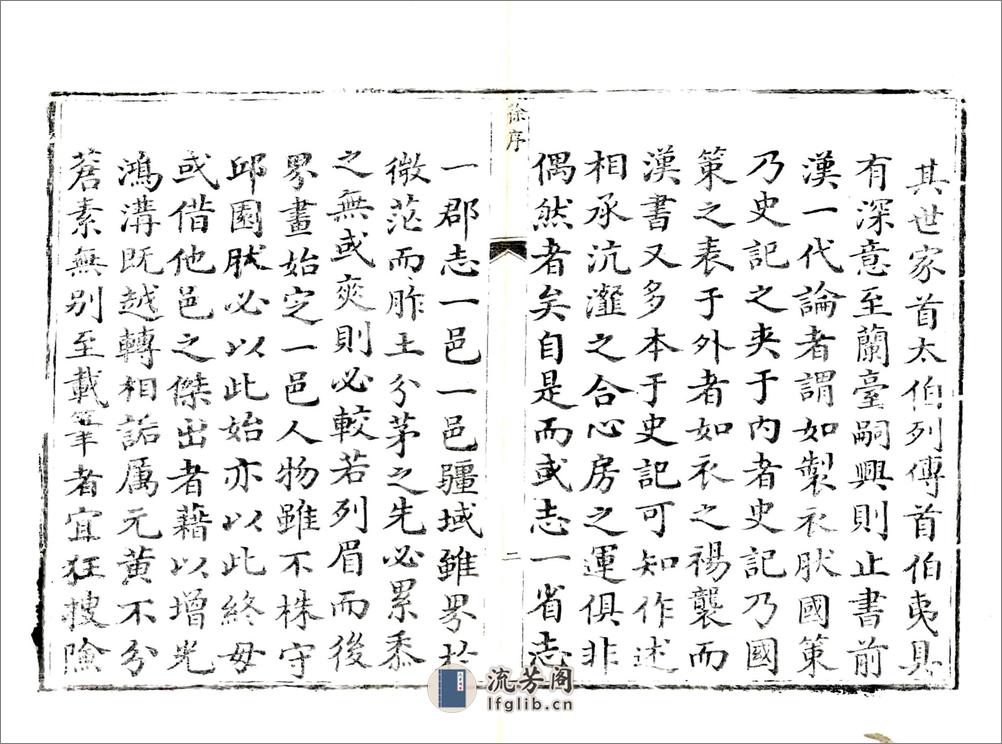 其世家首太伯列傳首伯夷具
有深意至蘭臺嗣興則止書前
漢一代論者謂如製衣肰國策
乃史記之夾于内者史記乃國
策之表于外者如衣之裼襲而
漢書又多本于史記可知作述
相承沆瀣之合心房之運俱非
偶然者矣自是而或志一省志
徐序
二
一郡志一邑一邑疆域雖界於
微茫而胙土分茅之先必累黍
之無或爽則必較若列眉而後
界畫始定一邑人物雖不株守
邱園肰必以此始亦以此終毋
或借他邑之傑出者藉以增光
鴻溝既越轉相詬厲元黃不分
蒼素無別至載筆者宜狂搜險
流芳阁
lfglib.cn